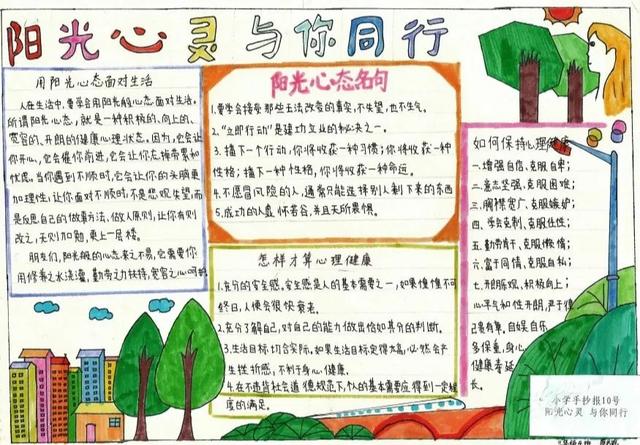 阳光心灵与你同行
用阳光心态面对生活
人在生活中,要学会用阳光般的心态面对生活。
所谓阳光心态,就是一种积极的、向上的、
宽容的、开朗的健康心理状态。因为,它会让
你开心,它会催你前进,它会让你忘掉劳累和
忧虑。当你遇到不顺时,它会让你的头脑更
加理性,让你面对不顺时,不是悲观失望,而
是反思自己的做事方法、做人原则,让你有则
改之,无则加勉,更上一层楼。
朋友们,阳光般的心态来之不易,它需要你
用修养之水浇灌,勤劳之力扶持,宽容之心呵护
阳光心态名句
1.要学会接受那些无法改变的事实,不失望,也不生气。
2."立即行动"是建功立业的秘诀之一。
3.播下一个行动,你将收获一种习惯;你将收获一种
性格;播下一种性格,你将收获一种命运。
4.不愿冒风险的人,通常只能选择别人剩下来的东西
5.成功的人喜怀若谷,并且无所畏惧。
怎样才算心理健康
1.充分的安全感。安全感是人的基本需要之一,如果惶惶不可
终日,人便会很快衰老。
2.充分了解自己,对自己的能力做出恰如其分的判断。
3.生活目标切合实际。如果生活目标定得太高,必然会产
生挫折感,不利于身心健康。
4.在不违背社会道德规范下,个人的基本需要应得到一定程
度的满足。
如何保持心理健康
一.增强自信、克服自卑;
二.意志坚强、克服困难;
三.胸襟宽广、克服嫉妒;
四.学会克制、克服任性;
五.勤劳肯干、克服懒惰;
六.富于同情、克服自私;
七.开朗乐观、积极向上;
心平气和性开朗,严于律
己寡有求,自娱自乐
多保重,身心
健康寿延
长。
小学手抄报10号
阳光心灵 与你同行